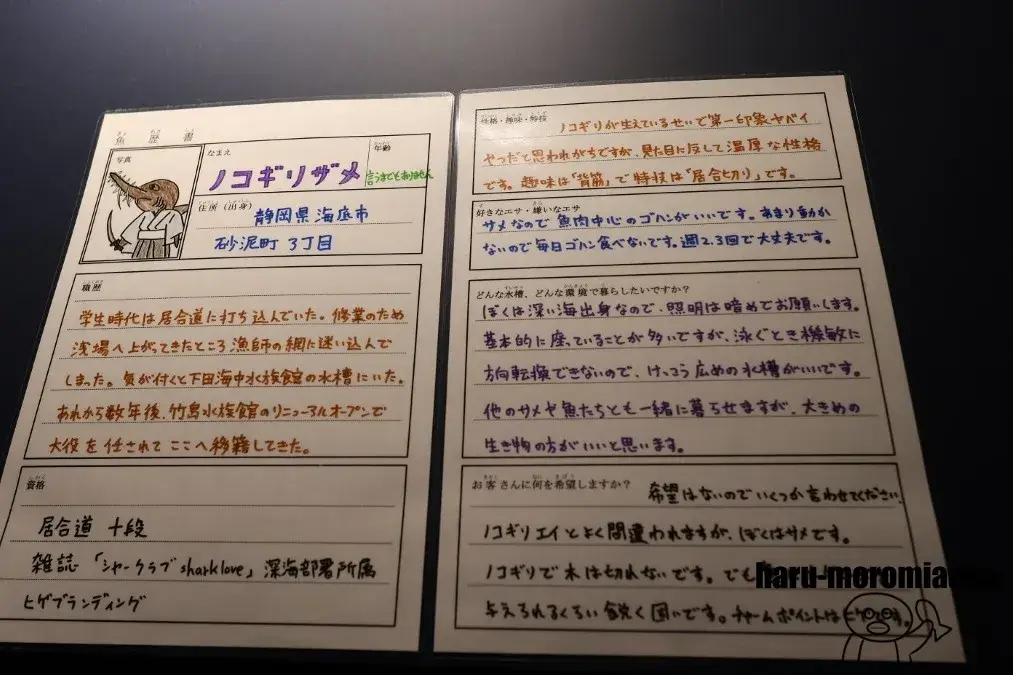 魚歴書
写真
なまえ
ノコギリザメ
年齢
言うまでもありません
住所（出身）
静岡県海底市
砂泥町3丁目
職歴
学生時代は居合道に打ち込んでいた。修業のため
浅場へ上がってきたところ漁師の網に迷い込んで
しまった。気が付くと下田海中水族館の水槽にいた。
あれから数年後、竹島水族館のリニューアルオープンで
大役を任されてここへ移籍してきた。
資格
居合道 十段
雑誌「シャークラブsharklove」深海部署所属
ヒゲブランディング
性格・趣味・特技
ノコギリが生えているせいで第一印象ヤバイ
やつだと思われがちですが、見た目に反して温厚な性格
です。趣味は「背筋」で特技は「居合切り」です。
好きなエサ・嫌いなエサ
サメなので魚肉中心のゴハンがいいです。あまり動か
ないので毎日ゴハン食べないです。週2.3回で大丈夫です。
どんな水槽、どんな環境で暮らしたいですか？
ぼくは深い海出身なので、照明は暗めでお願いします。
基本的に座っていることが多いですが、泳ぐとき機敏に
方向転換できないので、けっこう広めの水槽がいいです。
他のサメや魚たちとも一緒に暮らせますが、大きめの
生き物の方がいいと思います。
お客さんに何を希望しますか？
希望はないのでいくつか言わせてください。
ノコギリエイとよく間違われますが、ぼくはサメです。
ノコギリで木は切れないです。でも
与えられるくらい鋭く固いです。チャームポイントはヒゲです。
haru-moromia